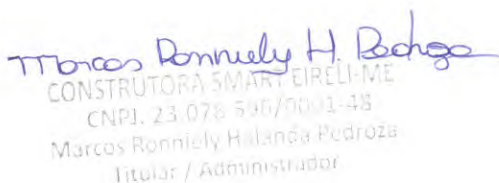 Marcos Ronniely H. Pedroza
CONSTRUTORA SMART EIRELI-ME
CNPJ. 23.078.596/0001-48
Marcos Ronniely Halanda Pedroza
Titular / Administrador